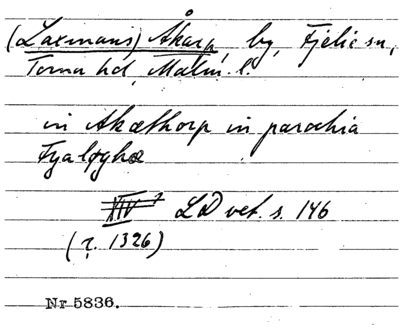 (Laxmans) Åkarp, by, Fjelie sn,
Torna hd, Malm. l.
in Akæthorp in parochia
Fyaløghæ
XIV LD vet. s. 146
(r. 1326)
Nr 5836.